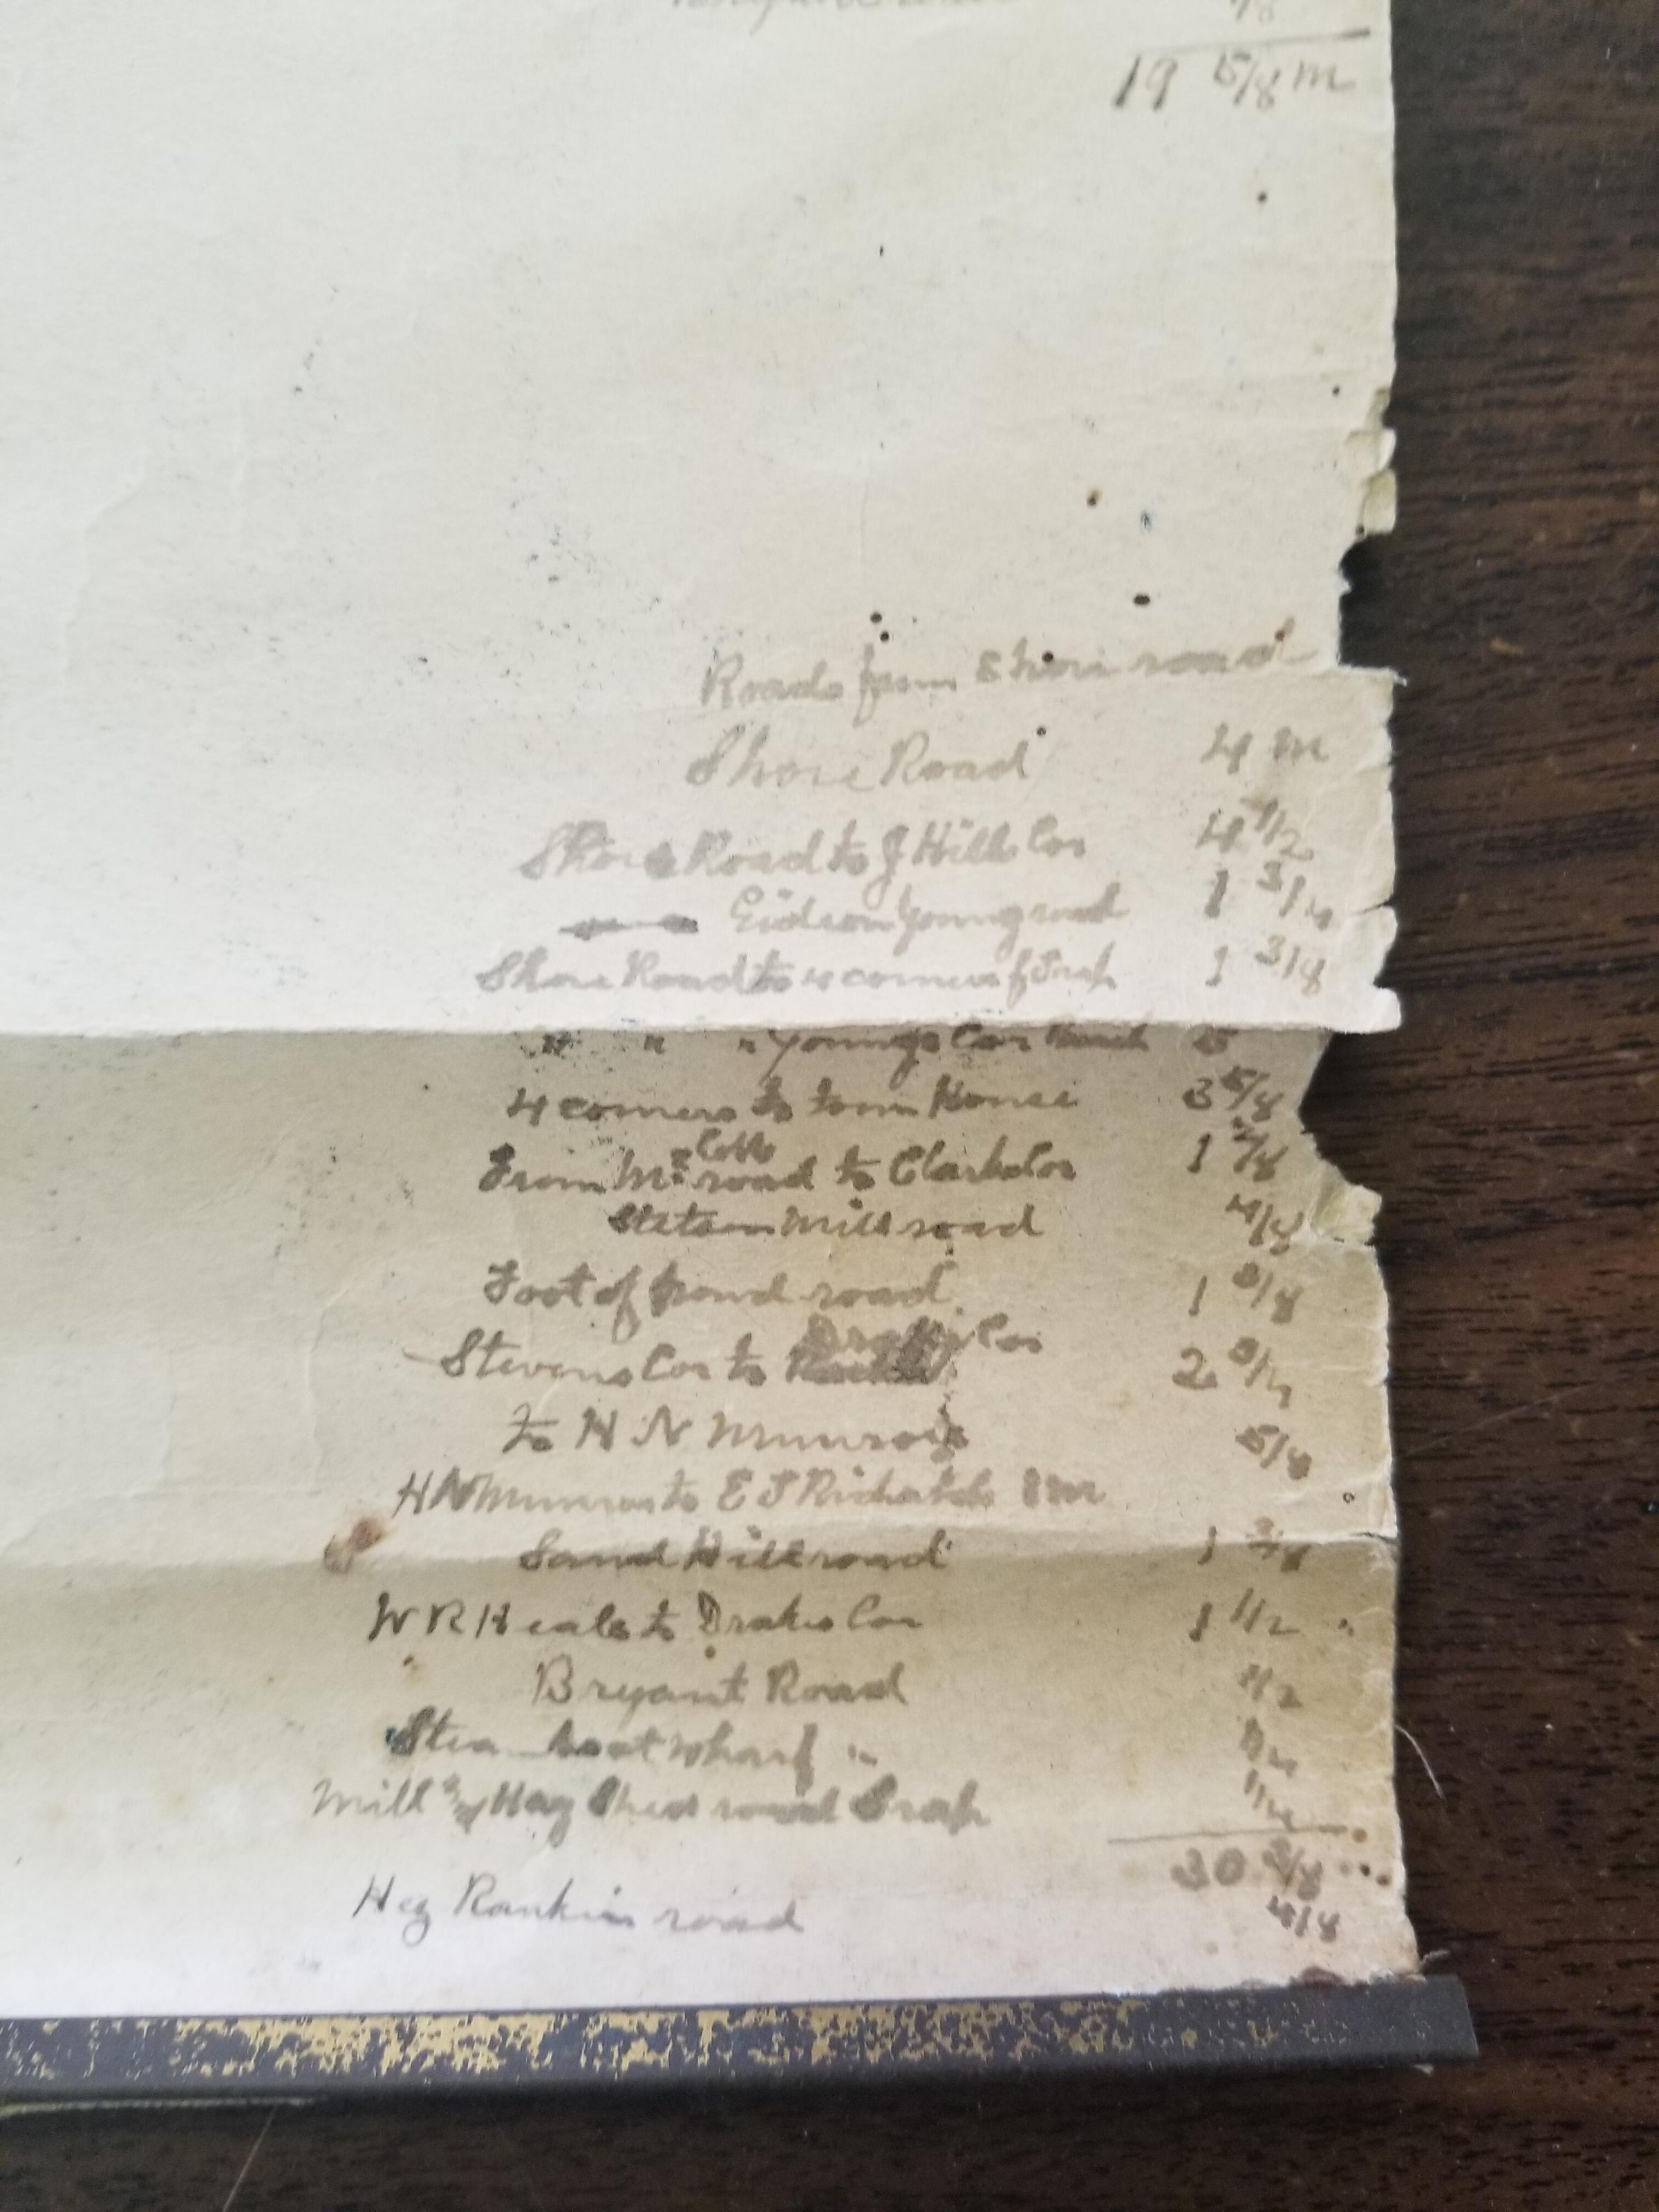 19 5/8 m
Roads from Shore road
Shore Road 4 m
Shore Road to J Hills Cor 4 1/2
Gideon Young road 1 3/4
Shore Road to 4 corners f Trap 1 3/8
" " " Youngs Cor 5
4 corners to town House 3 5/8
From Mc Cobb road to Clarks Cor 1
Stetson Mill road 4/8
Foot of pond road 1 3/8
Stevens Cor to Drakes Cor 2 3/4
to H N Munroes 5/8
H N Munroes to E T Richards 1 m
Sand Hill road 1
W R Heals to Drakes Cor 1 1/2
Bryant Road 1/2
Steamboat wharf " 1/4
Mill and Hay Shed road Trap 1/4
30
Hez Rankin road 4/8